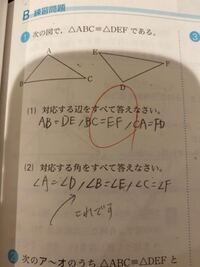 B 練習問題
1 次の図で，△ABC≡△DEF である。
3
A
E
B
C
F
D
(1) 対応する辺をすべて答えなさい。
AB=DE, BC=EF, CA=FD
(2) 対応する角をすべて答えなさい。
∠A=∠D, ∠B=∠E, ∠C=∠F
これです
2 次のア〜オのうち △ABC≡△DEF と